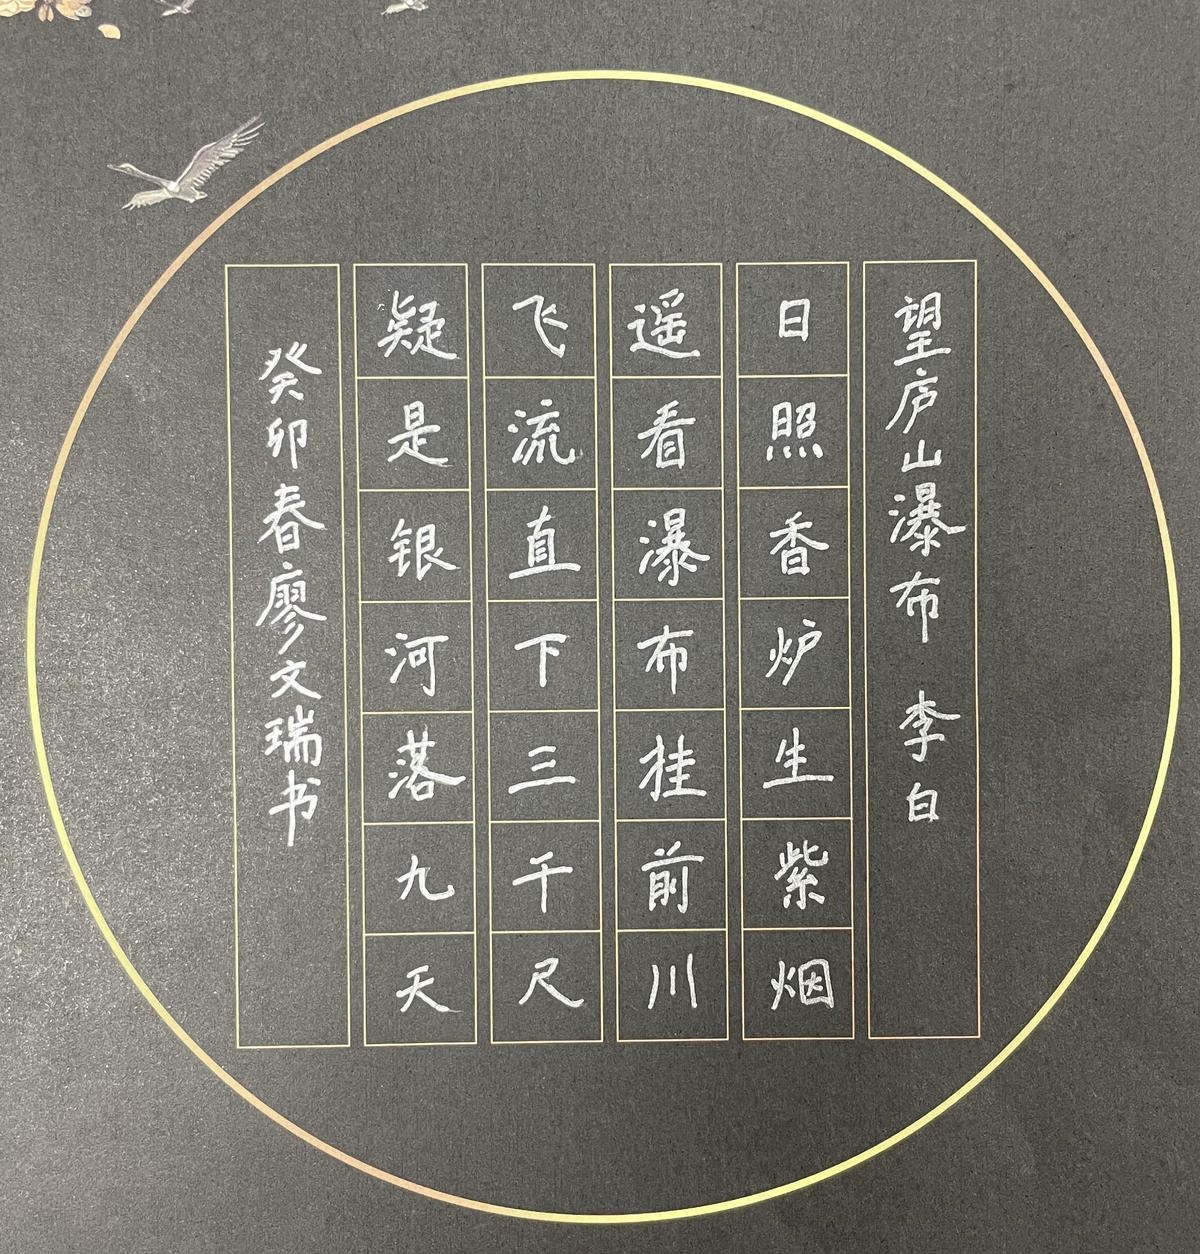 望庐山瀑布 李白
日照香炉生紫烟
遥看瀑布挂前川
飞流直下三千尺
疑是银河落九天
癸卯春廖文瑞书